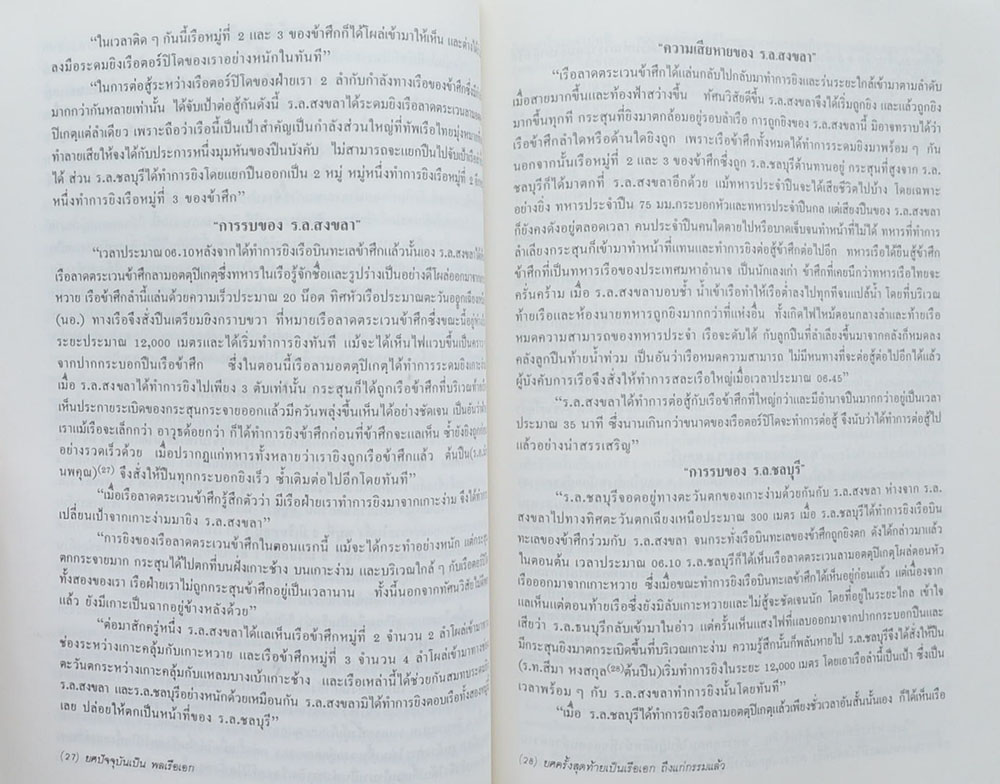 “ในเวลาติด ๆ กันนี้เรือหมู่ที่ 2 และ 3 ของข้าศึกก็ได้โผล่เข้ามาให้เห็น และต่างได้
ลงมือระดมยิงเรือตอร์ปิโดของเราอย่างหนักในทันที”
“ในการต่อสู้ระหว่างเรือตอร์ปิโดของฝ่ายเรา 2 ลำกับกำลังทางเรือของข้าศึกซึ่ง
มากกว่ากันหลายเท่านั้น ได้จับเป้าต่อสู้กันดังนี้ ร.ล.สงขลาได้ระดมยิงเรือลาดตระเวนลามอตต์
ปิเกต์แต่ลำเดียว เพราะถือว่าเรือนี้เป็นเป้าสำคัญเป็นกำลังส่วนใหญ่ที่ทัพเรือไทยมุ่งหมาย
ทำลายเสียให้จงได้กับประการหนึ่งมุมหันของปืนบังคับ ไม่สามารถจะแยกปืนไปจับเป้าเรือ
ได้ ส่วน ร.ล.ชลบุรีได้ทำการยิงโดยแยกปืนออกเป็น 2 หมู่ หมู่หนึ่งทำการยิงเรือหมู่ที่ 2
หนึ่งทำการยิงเรือหมู่ที่ 3 ของข้าศึก”
“การรบของ ร.ล.สงขลา”
“เวลาประมาณ 06.10หลังจากได้ทำการยิงเรือบินทะเลข้าศึกแล้วนั้นเอง ร.ล.สงขลา
เรือลาดตระเวนข้าศึกลามอตต์ปิเกต์ซึ่งทหารในเรือรู้จักชื่อและรูปร่างเป็นอย่างดีโผล่ออกมาจาก
หวาย เรือข้าศึกลำนี้แล่นด้วยความเร็วประมาณ 20 น๊อต ทิศหัวเรือประมาณตะวันออกเฉียงเหนือ
(นอ.) ทางเรือจึงสั่งปืนเตรียมยิงกราบขวา ที่หมายเรือลาดตระเวนข้าศึกซึ่งขณะนี้อยู่
ระยะประมาณ 12,000 เมตรและได้เริ่มทำการยิงทันที แม้จะได้เห็นไฟแวบขึ้นเป็น
จากปากกระบอกปืนเรือข้าศึก ซึ่งในตอนนี้เรือลามอตต์ปิเกต์ได้ทำการระดมยิง
เมื่อ ร.ล.สงขลาได้ทำการยิงไปเพียง 3 ตับเท่านั้น กระสุนก็ได้ถูกเรือข้าศึกที่บริเวณ
เห็นประกายระเบิดของกระสุนกระจายออกแล้วมีควันพลุ่งขึ้นเห็นได้อย่างชัดเจน เป็นอัน
เราแม้เรือจะเล็กกว่า อาวุธด้อยกว่า ก็ได้ทำการยิงข้าศึกก่อนที่ข้าศึกจะแลเห็น ซ้ำยังยิงถูก
อย่างรวดเร็วด้วย เมื่อปรากฏแก่ทหารทั้งหลายว่าเรายิงถูกเรือข้าศึกแล้ว ต้นปืน
นพคุณ)(27) จึงสั่งให้ปืนทุกกระบอกยิงเร็ว ซ้ำเติมต่อไปอีกโดยทันที”
“เมื่อเรือลาดตระเวนข้าศึกรู้สึกตัวว่า มีเรือฝ่ายเราทำการยิงมาจากเกาะง่าม จึงได้
เปลี่ยนเป้าจากเกาะง่ามมายิง ร.ล.สงขลา”
“การยิงของเรือลาดตระเวนข้าศึกในตอนแรกนี้ แม้จะได้กระทำอย่างหนัก แต่กระสุน
ตกกระจายมาก กระสุนได้ไปตกที่บนฝั่งเกาะช้าง บนเกาะง่าม และบริเวณใกล้ ๆ กับเรือตอร์ปิโด
ทั้งสองของเรา เรือฝ่ายเราไม่ถูกกระสุนข้าศึกอยู่เป็นเวลานาน ทั้งนี้นอกจากทัศนวิสัยไม่
แล้ว ยังมีเกาะเป็นฉากอยู่ข้างหลังด้วย”
“ต่อมาสักครู่หนึ่ง ร.ล.สงขลาได้แลเห็นเรือข้าศึกหมู่ที่ 2 จำนวน 2 ลำโผล่เข้ามา
ช่องระหว่างเกาะคลุ้มกับเกาะหวาย และเรือข้าศึกหมู่ที่ 3 จำนวน 4 ลำโผล่เข้ามาทาง
ตะวันตกระหว่างเกาะคลุ้มกับแหลมบางเบ้าเกาะช้าง และเรือเหล่านี้ได้ช่วยกันสมทบระดมยิง
ร.ล.สงขลา และร.ล.ชลบุรีอย่างหนักด้วยเหมือนกัน ร.ล.สงขลามิได้ทำการยิงตอบเรือทั้งสองหมู่
เลย ปล่อยให้ตกเป็นหน้าที่ของ ร.ล.ชลบุรี”
(27) ยศปัจจุบันเป็น พลเรือเอก
“ความเสียหายของ ร.ล.สงขลา”
“เรือลาดตระเวนข้าศึกได้แล่นกลับไปกลับมาทำการยิงและร่นระยะใกล้เข้ามาตามลำดับ
เมื่อสายมากขึ้นและท้องฟ้าสว่างขึ้น ทัศนวิสัยดีขึ้น ร.ล.สงขลาจึงได้เริ่มถูกยิง และแล้วถูกยิง
มากขึ้นทุกที กระสุนที่ยิงมาตกล้อมอยู่รอบลำเรือ การถูกยิงของ ร.ล.สงขลานี้ มิอาจทราบได้ว่า
เรือข้าศึกลำใดหรือด้านใดยิงถูก เพราะเรือข้าศึกทั้งหมดได้ทำการระดมยิงมาพร้อม ๆ กัน
นอกจากนั้นเรือหมู่ที่ 2 และ 3 ของข้าศึกซึ่งถูก ร.ล.ชลบุรีต้านทานอยู่ กระสุนที่สูงจาก ร.ล.
ชลบุรีก็ได้มาตกที่ ร.ล.สงขลาอีกด้วย แม้ทหารประจำปืนจะได้เสียชีวิตไปบ้าง โดยเฉพาะ
อย่างยิ่ง ทหารประจำปืน 75 มม.กระบอกหัวและทหารประจำปืนกล แต่เสียงปืนของ ร.ล.สงขลา
ก็ยังคงดังอยู่ตลอดเวลา คนประจำปืนคนใดตายไปหรือบาดเจ็บจนทำหน้าที่ไม่ได้ ทหารที่ทำการ
ลำเลียงกระสุนก็เข้ามาทำหน้าที่แทนและทำการยิงต่อสู้ข้าศึกต่อไปอีก ทหารเรือได้ยืนสู้ข้าศึก
ข้าศึกที่เป็นทหารเรือของประเทศมหาอำนาจ เป็นนักเลงเก่า ข้าศึกที่เคยนึกว่าทหารเรือไทยจะ
ครั่นคร้าม เมื่อ ร.ล.สงขลาบอบช้ำ น้ำเข้าเรือทำให้เรือต่ำลงไปทุกทีจนแปล้น้ำ โดยที่บริเวณ
ท้ายเรือและห้องนายทหารถูกยิงมากกว่าที่แห่งอื่น ทั้งเกิดไฟไหม้ตอนกลางลำและท้ายเรือ
หมดความสามารถของทหารประจำ เรือจะดับได้ กับลูกปืนที่ลำเลียงขึ้นมาจากคลังก็หมดลง
คลังลูกปืนท้ายน้ำท่วม เป็นอันว่าเรือหมดความสามารถ ไม่มีหนทางที่จะต่อสู้ต่อไปอีกได้แล้ว
ผู้บังคับการเรือจึงสั่งให้ทำการสละเรือใหญ่เมื่อเวลาประมาณ 06.45”
“ร.ล.สงขลาได้ทำการต่อสู้กับเรือข้าศึกที่ใหญ่กว่าและมีอำนาจปืนมากกว่าอยู่เป็นเวลา
ประมาณ 35 นาที ซึ่งนานเกินกว่าขนาดของเรือตอร์ปิโดจะทำการต่อสู้ จึงนับว่าได้ทำการต่อสู้ไป
แล้วอย่างน่าสรรเสริญ”
“การรบของ ร.ล.ชลบุรี”
“ร.ล.ชลบุรีจอดอยู่ทางตะวันตกของเกาะง่ามด้วยกันกับ ร.ล.สงขลา ห่างจาก ร.ล.
สงขลาไปทางทิศตะวันตกเฉียงเหนือประมาณ 300 เมตร เมื่อ ร.ล.ชลบุรีได้ทำการยิงเรือบิน
ทะเลของข้าศึกร่วมกับ ร.ล.สงขลา จนกระทั่งเรือบินทะเลของข้าศึกถูกยิงตก ดังได้กล่าวมาแล้ว
ในตอนต้น เวลาประมาณ 06.10 ร.ล.ชลบุรีก็ได้เห็นเรือลาดตระเวนลามอตต์ปิเกต์โผล่ตอนหัว
เรือออกมาจากเกาะหวาย ซึ่งเมื่อขณะทำการยิงเรือบินทะเลข้าศึกได้เห็นอยู่ก่อนแล้ว แต่เนื่องจาก
แลเห็นแต่ตอนท้ายเรือซึ่งยังมิลับเกาะหวายและไม่สู้จะชัดเจนนัก โดยที่อยู่ในระยะไกล เข้าใจ
เสียว่า ร.ล.ธนบุรีกลับเข้ามาในอ่าว แต่ครั้นเห็นแสงไฟที่แลบออกมาจากปากกระบอกปืนและ
มีกระสุนยิงมาตกระเบิดขึ้นที่บริเวณเกาะง่าม ความรู้สึกนั้นก็พลันหายไป ร.ล.ชลบุรีจึงได้สั่งให้ปืน
(ร.ท.สีมา หงสกุล(28)ต้นปืน)เริ่มทำการยิงในระยะ 12,000 เมตร โดยเอาเรือลำนี้เป็นเป้า ซึ่งเป็น
เวลาพร้อม ๆ กับ ร.ล.สงขลาทำการยิงนั้นโดยทันที”
“เมื่อ ร.ล.ชลบุรีได้ทำการยิงเรือลามอตต์ปิเกต์แล้วเพียงชั่วเวลาอันสั้นนั้นเอง ก็ได้เห็นเรือ
(28) ยศครั้งสุดท้ายเป็นเรือเอก ถึงแก่กรรมแล้ว